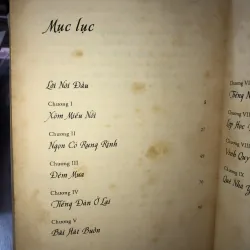 Mục lục
Lời Nói Đầu
Chương I
Xóm Miếu Nổi
Chương II
Ngọn Cỏ Rung Rinh
Chương III
Đêm Mưa
Chương IV
Tiếng Đàn Ở Lại
Chương V
Bài Hát Buồn
Chương VI
Tiếng
Chương VII
Lớp Học
Chương VIII
Vinh Quy
Chương IX
Quê Nhà